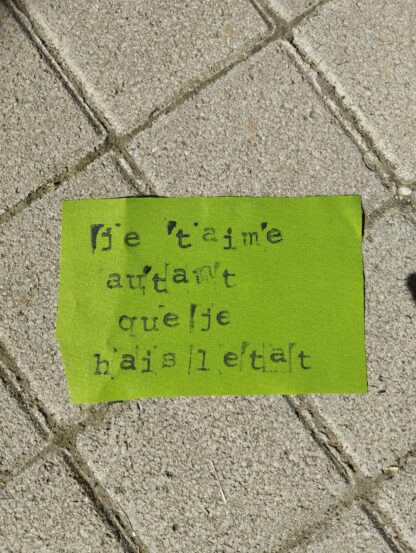 je t'aime
autant
que je
hais l etat